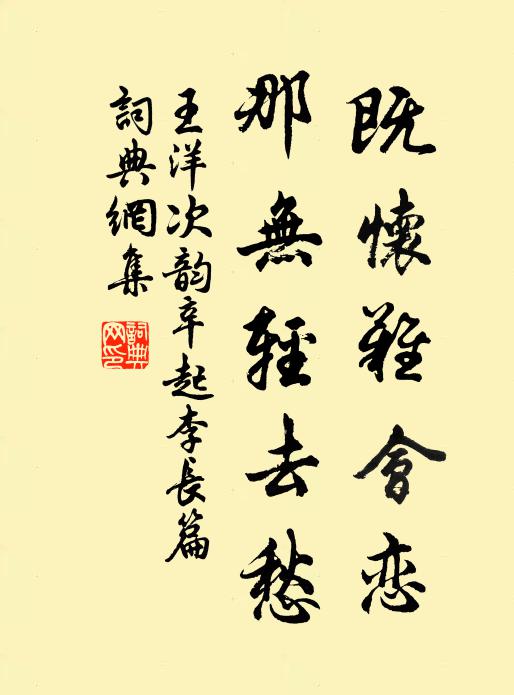 既懷難會恋
那無輕去愁
王洋次韵辛起李長篇
詞典網集
詞典網印